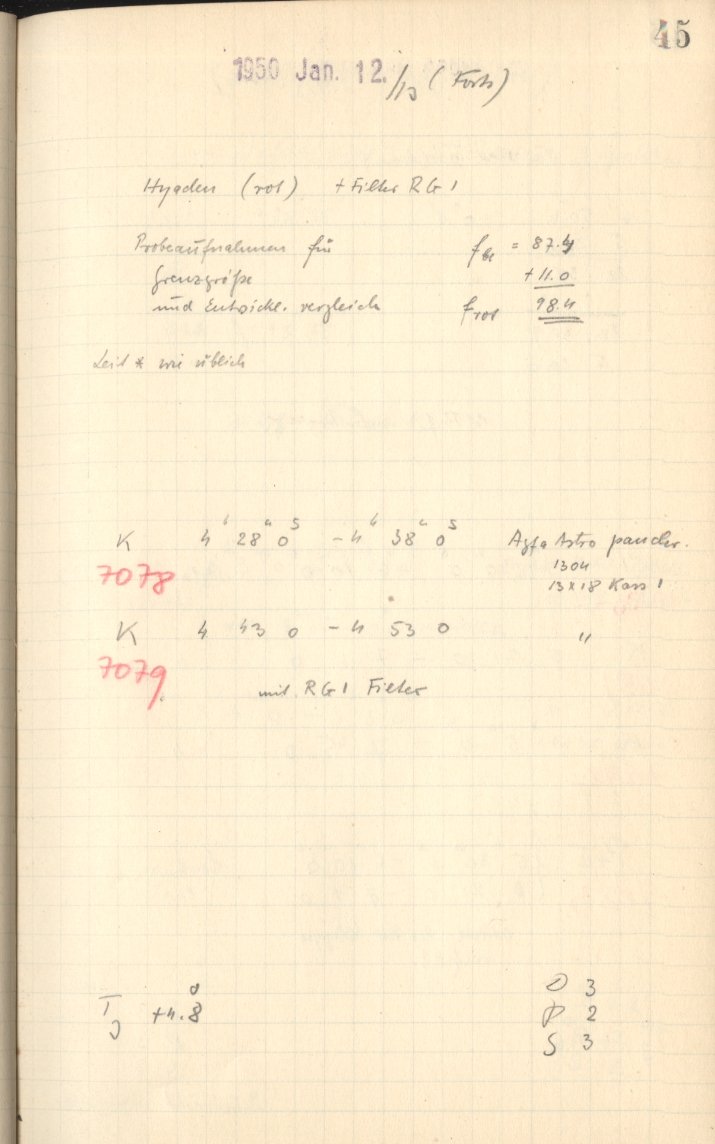 45
1950 Jan. 12./13 (Forts)
Hyaden (rot) + Filter RG 1
Probeaufnahmen für f_bl = 87.4
Grenzgröße + 11.0
und Entwickl. vergleich f_rot 98.4
Leit * wie üblich
K 4h 28m 0s – 4h 38m 0s Agfa Astro panchr.
7078 1304
13 x 18 Kass 1
K 4 43 0 – 4 53 0 "
7079
mit RG 1 Filter
D 3
T +4.8° P 2
J S 3